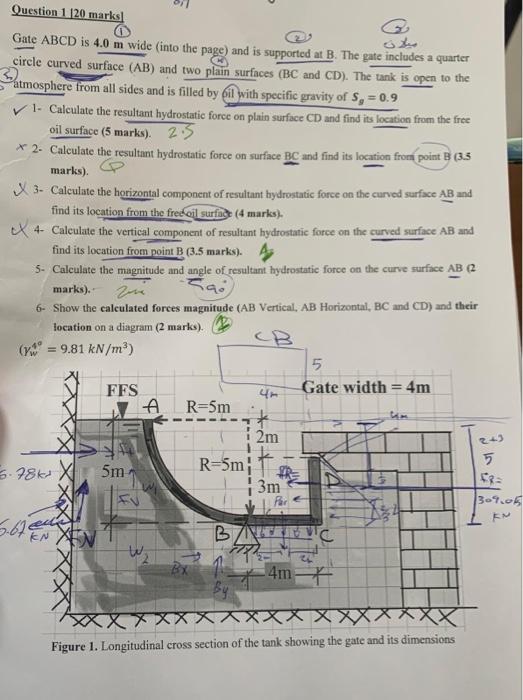 Question 1 [20 marks]
Gate ABCD is 4.0 m wide (into the page) and is supported at B. The gate includes a quarter
circle curved surface (AB) and two plain surfaces (BC and CD). The tank is open to the
atmosphere from all sides and is filled by oil with specific gravity of Sg = 0.9
1- Calculate the resultant hydrostatic force on plain surface CD and find its location from the free
oil surface (5 marks). 2.5
2- Calculate the resultant hydrostatic force on surface BC and find its location from point B (3.5
marks).
3- Calculate the horizontal component of resultant hydrostatic force on the curved surface AB and
find its location from the free oil surface (4 marks).
4- Calculate the vertical component of resultant hydrostatic force on the curved surface AB and
find its location from point B (3.5 marks).
5- Calculate the magnitude and angle of resultant hydrostatic force on the curve surface AB (2
marks).
6- Show the calculated forces magnitude (AB Vertical, AB Horizontal, BC and CD) and their
location on a diagram (2 marks).
(γw4° = 9.81 kN/m³)
CB
5
4m
FFS
A
R=5m
Gate width = 4m
4m
2m
2+3
5
5m
R=5m
3m
FR=
309.05
KN
D
FV
W1
B
C
W2
Bx
By
4m
KN
FV
Figure 1. Longitudinal cross section of the tank showing the gate and its dimensions